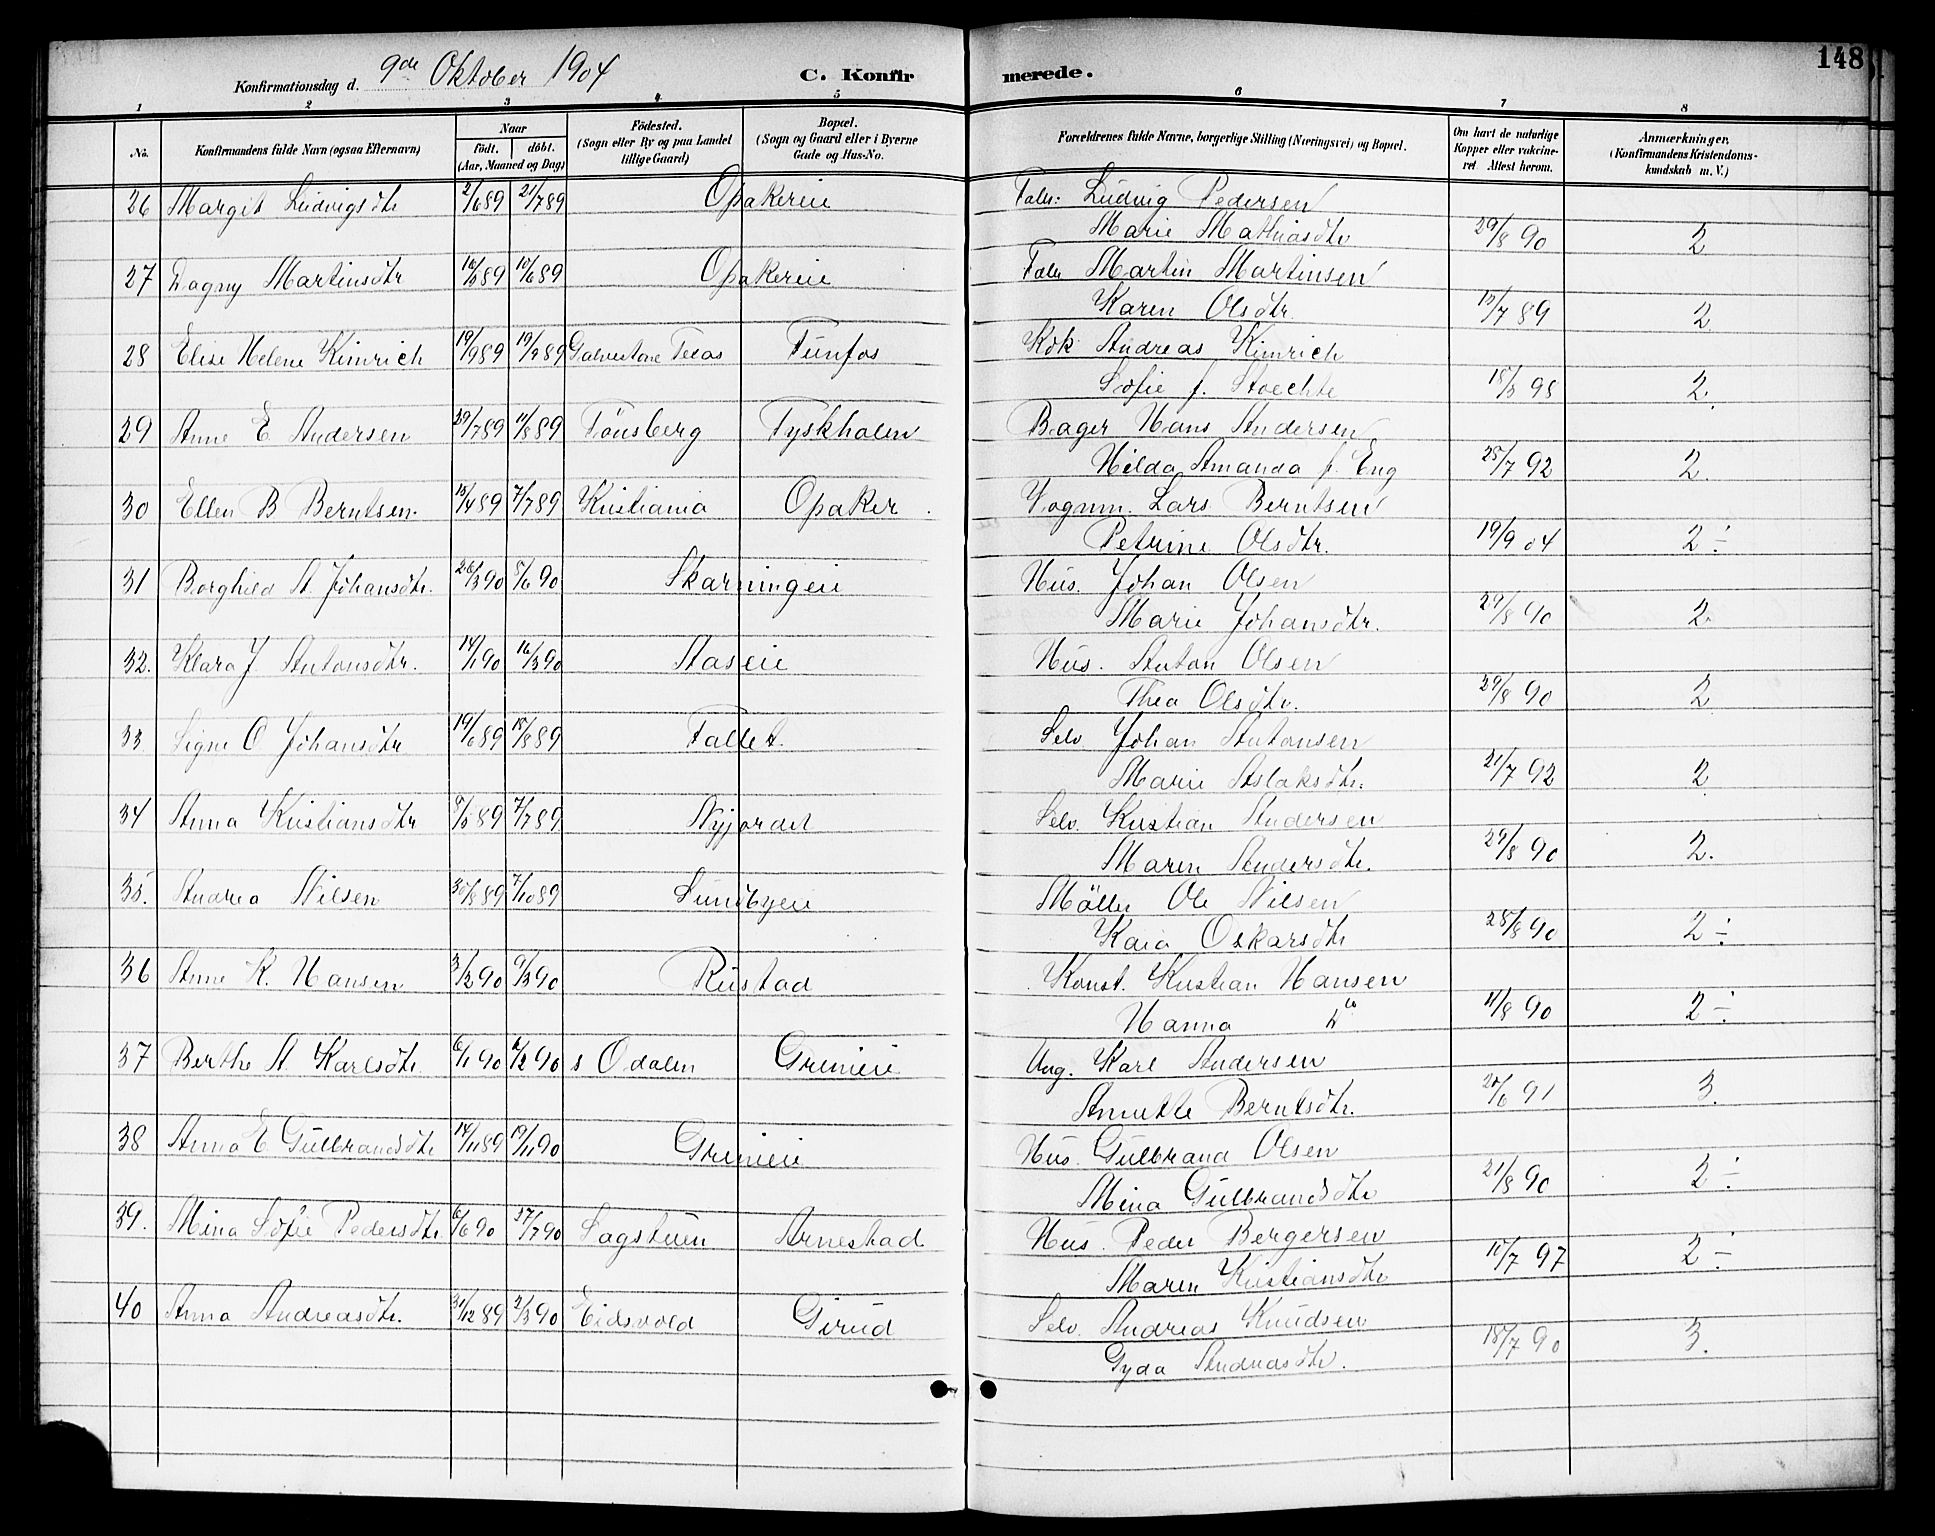 148
Konfirmationsdag d. 9de Oktober 1904 C. Konfirmerede.
1 2 3 4 5 6 7 8
No. Konfirmandens fulde Navn (ogsaa Efternavn) Naar födt. döbt. (Aar, Maaned og Dag) Födested. (Sogn eller By og paa Landet tillige Gaard) Bopæl. (Sogn og Gaard eller i Byerne Gade og Hus-No. Forældrenes fulde Navne, borgerlige Stilling (Næringsvei) og Bopæl. Om havt de naturlige Kopper eller vakcineret. Attest herom. Anmærkninger. (Konfirmandens Kristendomskundskab m. V.)
26 Margit Ludvigsdtr 2/6 89 21/7 89 Opakereie Fabr: Ludvig Pedersen
Marie Mathiasdtr 29/8 90 2
27 Dagny Martinsdtr 16/3 89 10/6 89 Opakereie Fabr Martin Martinsen
Karen Olsdtr. 15/7 89 2
28 Elise Helene Kimrich 19/9 89 19/9 89 Galvestone Texas Funfos Kok Andreas Kimrich
Sofie f. Stoechte 15/3 98 2.
29 Anne E Andersen 29/7 89 11/8 89 Tönsberg Tyskholen Bager Hans Andersen
Hilda Amanda f. Eng 25/7 92 2.
30 Ellen B Berntsen. 15/4 89 7/7 89 Kristiania Opaker. Vognm. Lars Berntsen
Petrine Olsdtr. 19/9 04 2 ÷
31 Borghild A. Johansdtr. 26/3 90 5/6 90 Skarningeie Hus. Johan Olsen
Marie Johansdtr. 29/8 90 2.
32. Klara J. Antonsdtr. 14/1 90 16/3 90 Aaseie Hus. Anton Olsen
Thea Olsdtr. 29/8 90 2
33 Signe O Johansdtr 19/6 89 18/8 89 Fallet. Selv. Johan Antonsen
Marie Aslaksdtr. 21/7 92 2
34 Anna Kristiansdtr 5/5 89 7/7 89 Nyjordet Selv. Kristian Andersen
Maren Andersdtr. 29/8 90 2.
35. Andrea Nilsen 30/8 89 7/10 89 Sundbyeie Möller Ole Nilsen
Kaia Oskarsdtr 28/8 90 2 ÷
36 Anne K. Hansen 3/2 90 9/3 90 Rustad Konst. Kristian Hansen
Hanna " 11/8 90 2 ÷
37 Berthe A Karlsdtr. 6/1 90 2/2 90 s Odalen Grinieie Ung. Karl Andersen
Annette Berntsdtr. 20/6 91 3.
38 Anna E Gulbrandsdtr 14/11 89 19/1 90 Grinieie Hus. Gulbrand Olsen
Mina Gulbrandsdtr 21/8 90 2 ÷
39. Mina Sofie Pedersdtr. 6/6 90 27/7 90 Sagstuen Arnestad Hus. Peder Bergersen
Maren Kristiansdtr 15/7 97 2 ÷
40 Anna Andreasdtr. 31/12 89 2/3 90 Eidsvold Girud Selv. Andreas Knudsen
Gyda Andreasdtr. 18/7 90 3.